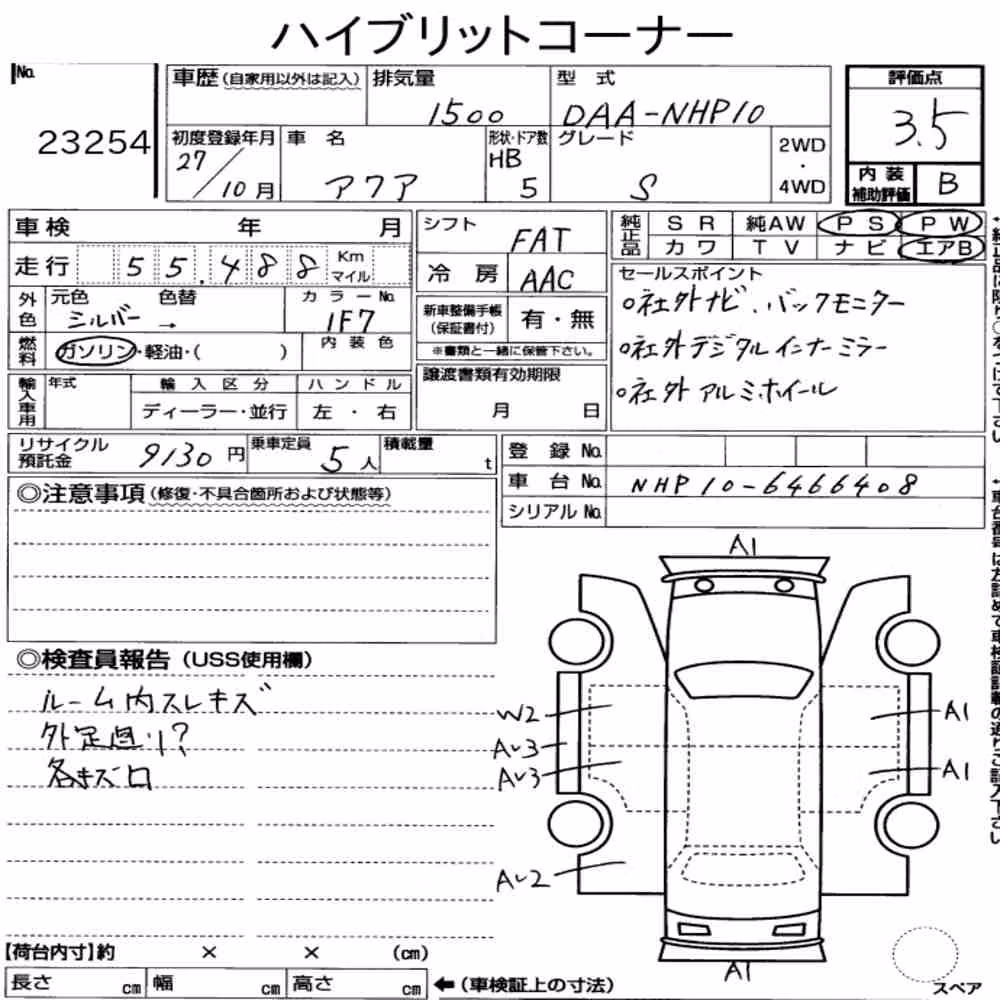 ハイブリットコーナー
No.
23254
車歴(自家用以外は記入)
排気量
1500
型式
DAA-NHP10
評価点
3.5
初度登録年月
27/10月
車名
アクア
形状・ドア数
HB
5
グレード
S
2WD
・
4WD
内装
補助評価
B
車検 年 月
走行 55.488 Km マイル
シフト
FAT
冷房
AAC
純正品
SR 純AW PS PW
カワ TV ナビ エアB
外色
元色 色替
シルバー →
カラーNo.
1F7
燃料
ガソリン・軽油・( )
内装色
新車整備手帳
(保証書付)
有・無
※書類と一緒に保管下さい。
セールスポイント
○社外ナビ、バックモニター
○社外デジタルインナーミラー
○社外アルミホイール
輸入車用
年式
輸入区分
ディーラー・並行
ハンドル
左・右
譲渡書類有効期限
月 日
リサイクル
預託金
9130円
乗車定員
5人
積載量
t
登録No.
車台No. NHP10-6466408
シリアルNo.
◎注意事項(修復・不具合箇所および状態等)
◎検査員報告(USS使用欄)
ルーム内スレキズ
外足廻り?
各キズ
A1
W2
A1
A1
A1
スペア
【荷台内寸】約 × × (cm)
長さ cm 幅 cm 高さ cm
←(車検証上の寸法)